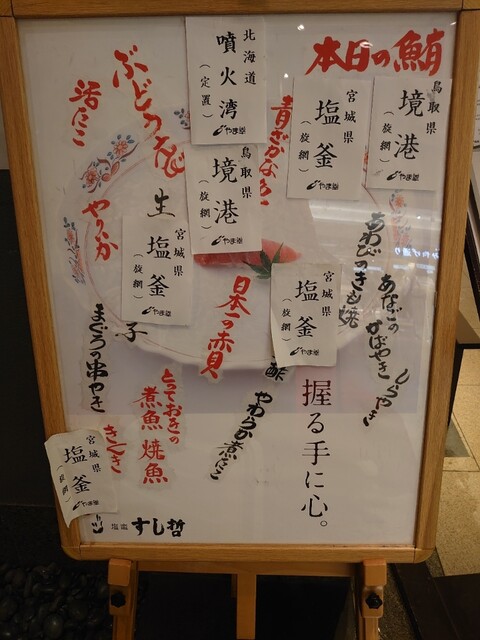 本日の鮪
鳥取県
境港
(旋網)
やま幸
宮城県
塩釜
(旋網)
やま幸
北海道
噴火湾
(定置)
やま幸
鳥取県
境港
(旋網)
やま幸
青ざかな
ぶどうえび
活たこ
やりいか
生
子
宮城県
塩釜
(旋網)
やま幸
まぐろの串やき
日本一の赤貝
宮城県
塩釜
(旋網)
やま幸
あわびのきも焼
あなごの
かばやき
しらやき
酢
やわらか煮だこ
とっておきの
煮魚 焼魚
きんき
宮城県
塩釜
(旋網)
やま幸
握る手に心。
すし哲